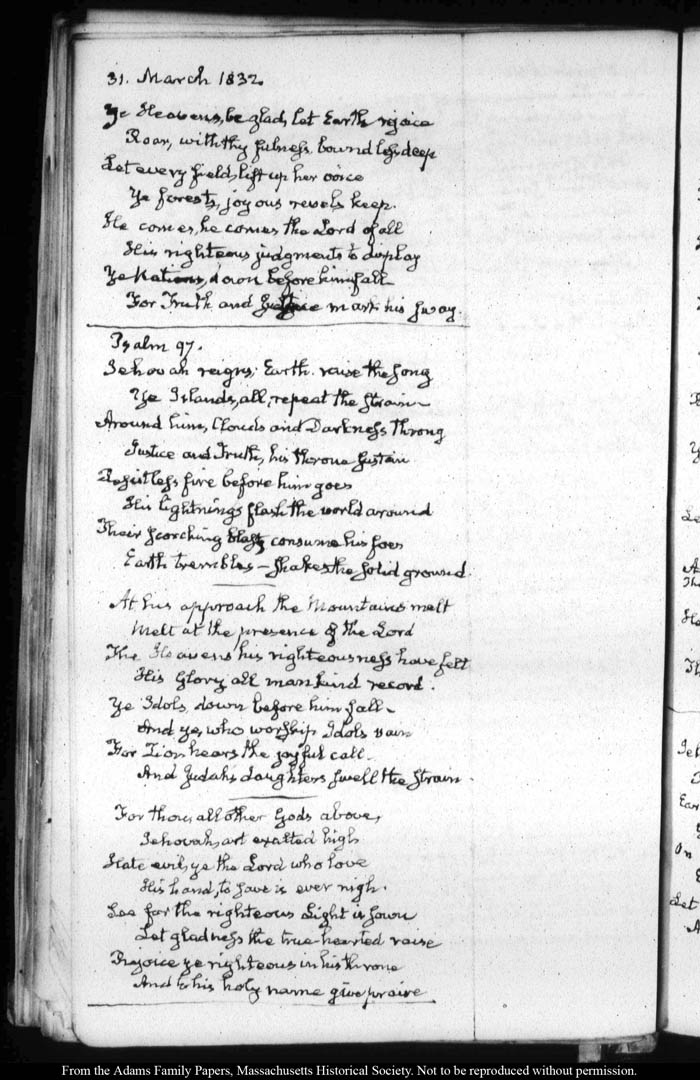 31. March 1832.
Ye Heavens, be glad, let Earth rejoice
Roar, with thy fulness, bound less deep
Let every field, lift up her voice
Ye forests, joyous revels keep.
He comes, he comes the Lord of all
His righteous judgments to display
Ye Nations, down before him fall
For Truth and Justice mark his sway.
Psalm 97.
Jehovah reigns; Earth. raise the song
Ye Islands, all, repeat the strain
Around him, Clouds and Darkness throng
Justice and Truth, his throne sustain
Resistless fire before him goes
His lightnings flash the world around
Their scorching blasts consume his foes
Earth trembles – shakes the solid ground.
At his approach the Mountains melt
Melt at the presence of the Lord
The Heavens his righteousness have felt
His Glory all mankind record.
Ye Idols, down before him fall –
And ye, who worship Idols vain
For Zion hears the joyful call –
And Judah's daughters swell the strain.
For thou, all other Gods above,
Jehovah, art exalted high
Hate evil, ye the Lord who love
His hand, to save is ever nigh.
See for the righteous Light is sown
Let gladness the true-hearted raise
Rejoice ye righteous in his throne
And to his holy name give praise
Let
From the Adams Family Papers, Massachusetts Historical Society. Not to be reproduced without permission.